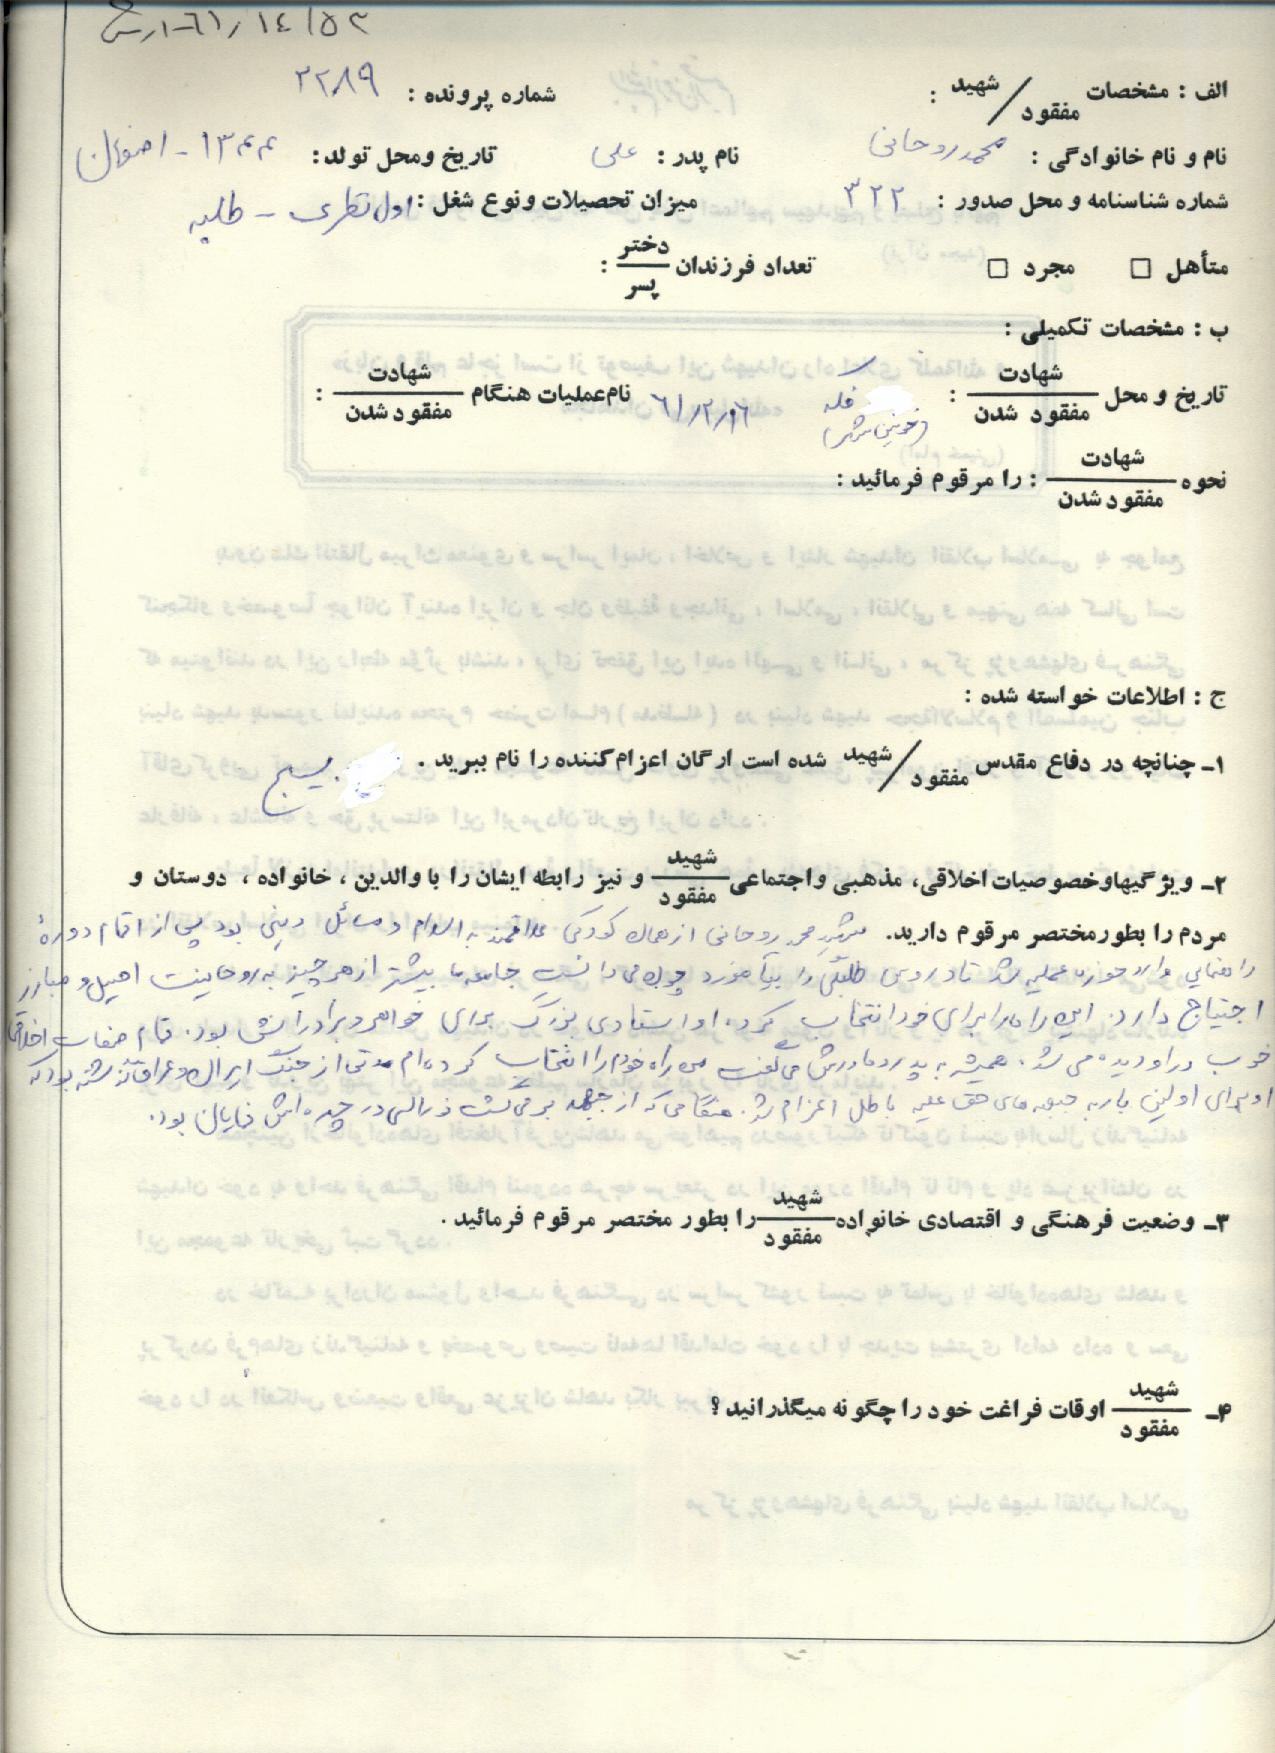 ۶۱/۱۴/۵۳
الف : مشخصات شهید / مفقود :
شماره پرونده : ۲۲۸۹
نام و نام خانوادگی : محمد روحانی نام پدر : علی تاریخ ومحل تولد : ۱۳۴۴ - اصفهان
شماره شناسنامه و محل صدور : ۳۲۲ میزان تحصیلات ونوع شغل : اول نظری - طلبه
متأهل □ مجرد □ تعداد فرزندان دختر / پسر :
ب : مشخصات تکمیلی :
تاریخ و محل شهادت / مفقود شدن : (خونین شهر) ۶۱/۲/۱۶ نام عملیات هنگام شهادت / مفقود شدن :
نحوه شهادت / مفقود شدن : را مرقوم فرمائید :
ج : اطلاعات خواسته شده :
۱- چنانچه در دفاع مقدس شهید / مفقود شده است ارگان اعزام کننده را نام ببرید . بسیج
۲- ویژگیهاوخصوصیات اخلاقی، مذهبی واجتماعی شهید / مفقود و نیز رابطه ایشان را با والدین ، خانواده ، دوستان و
مردم را بطور مختصر مرقوم دارید. شهید محمد روحانی از همان کودکی علاقمند به اسلام و مسائل دینی بود پس از اتمام دورهٔ
راهنمایی وارد حوزه علمیه شد تا دروس طلبگی را بیاموزد چون می دانست جامعه ما بیشتر از هر چیز به روحانیت اصیل و مبارز
احتیاج دارد. این راه را برای خود انتخاب کرد. او استادی بزرگ برای خواهر و برادرانش بود. تمام صفات اخلاقی
خوب در او دیده می شد. همیشه به پدر و مادرش می گفت من راه خودم را انتخاب کرده ام مدتی از جنگ ایران و عراق گذشته بود که
او برای اولین بار به جبهه های حق علیه باطل اعزام شد. هنگامی که از جبهه بر می گشت در چهره اش نمایان بود.
۳- وضعیت فرهنگی و اقتصادی خانواده شهید / مفقود را بطور مختصر مرقوم فرمائید .
۴- شهید / مفقود اوقات فراغت خود را چگونه میگذرانید ؟